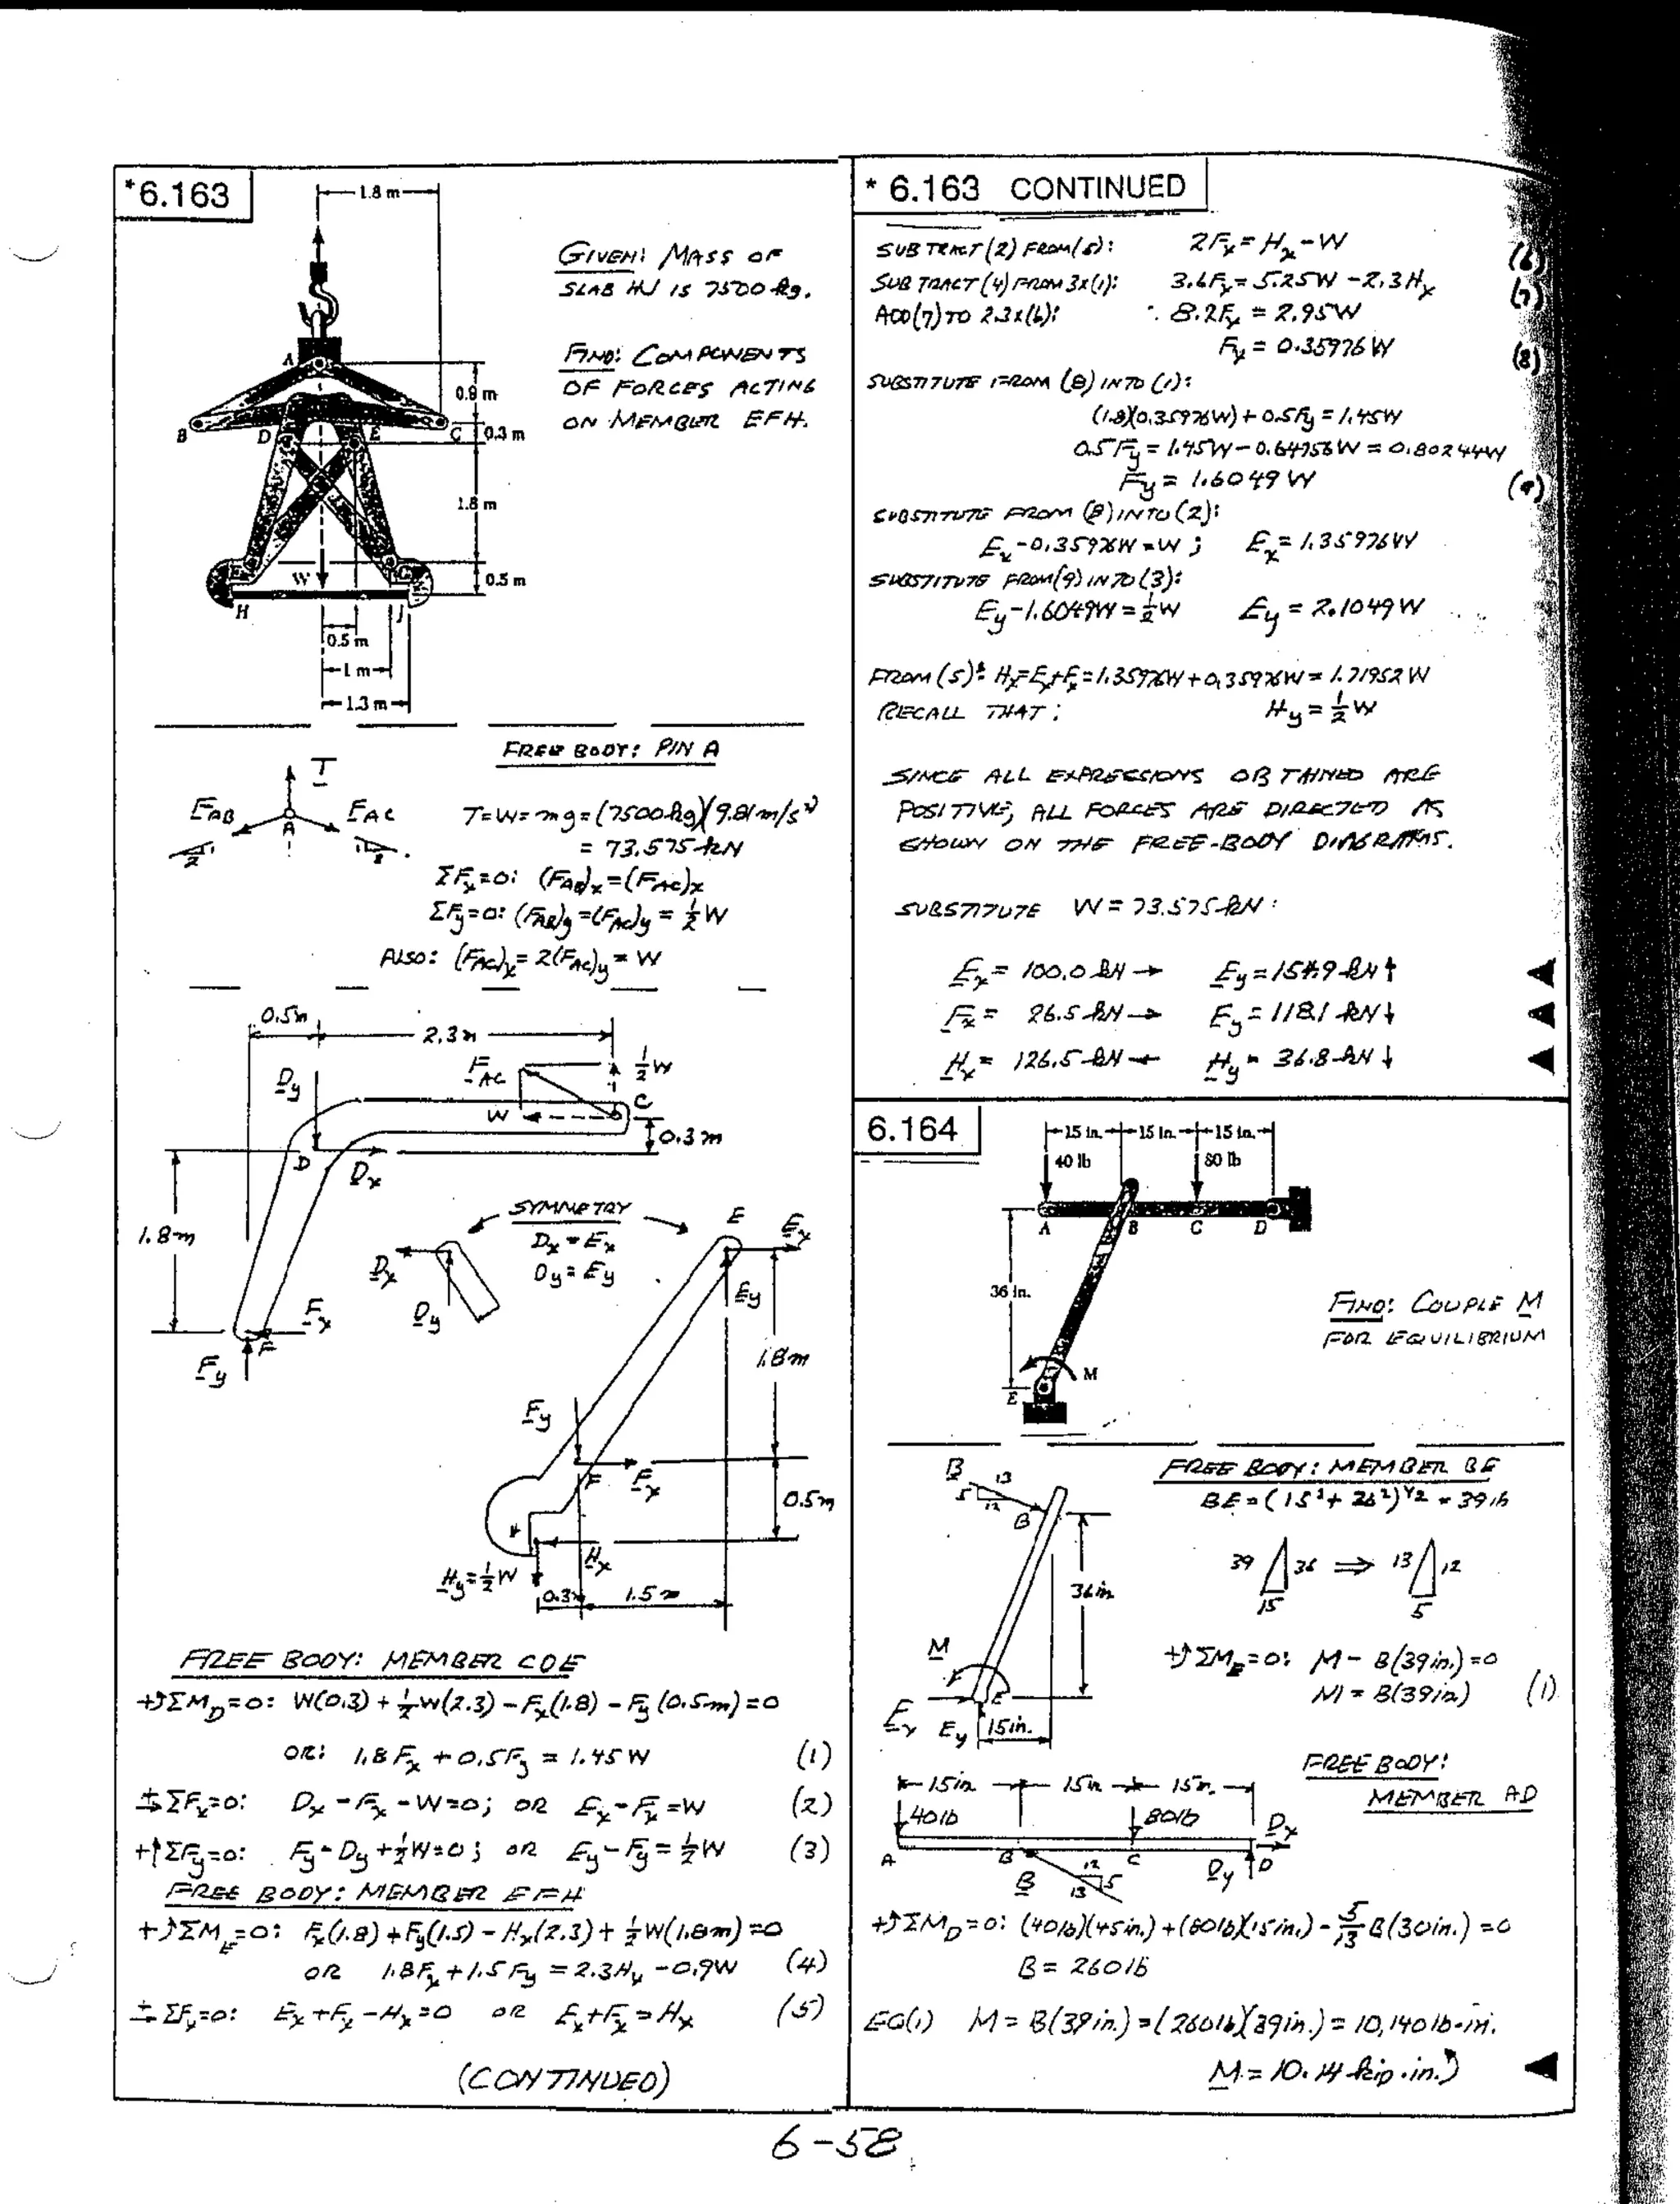 *6.163
1.8 m
GIVEN: MASS OF
SLAB HJ IS 7500 kg.
FIND: COMPONENTS
OF FORCES ACTING
ON MEMBER EFH.
A
0.9 m
B
D
E
C
0.3 m
1.8 m
W
G
0.5 m
H
J
0.5 m
1 m
1.3 m
FREE BODY: PIN A
T
FAB
FAC
A
T=W=mg=(7500 kg)(9.81 m/s²)
= 73.575 kN
ΣFx=0: (FAB)x=(FAC)x
ΣFy=0: (FAB)y=(FAC)y = ½W
ALSO: (FAC)x=2(FAC)y=W
0.5m
2.3m
FAC
½W
Dy
C
W
0.3m
D
Dx
1.8m
SYMMETRY
Dx=Ex
Dy=Ey
E
Ex
Dx
Dy
Ey
Fx
F
Fy
1.8m
Fy
F
Fx
0.5m
Hx
Hy=½W
0.3m
1.5m
FREE BODY: MEMBER CDE
+↺ΣMD=0: W(0.3)+½W(2.3)-Fx(1.8)-Fy(0.5m)=0
OR: 1.8Fx+0.5Fy=1.45W (1)
+→ΣFx=0: Dx-Fx-W=0; OR Ex-Fx=W (2)
+↑ΣFy=0: Fy-Dy+½W=0; OR Ey-Fy=½W (3)
FREE BODY: MEMBER EFH
+↺ΣME=0: Fx(1.8)+Fy(1.5)-Hx(2.3)+½W(1.8m)=0
OR 1.8Fx+1.5Fy=2.3Hx-0.9W (4)
+→ΣFx=0: Ex+Fx-Hx=0 OR Ex+Fx=Hx (5)
(CONTINUED)
* 6.163 CONTINUED
SUBTRACT (2) FROM (5): 2Fx=Hx-W (6)
SUBTRACT (4) FROM 3x(1): 3.6Fx=5.25W-2.3Hx (7)
ADD (7) TO 2.3x(6): 8.2Fx=2.95W
Fx=0.35976W (8)
SUBSTITUTE FROM (8) INTO (1):
(1.8)(0.35976W)+0.5Fy=1.45W
0.5Fy=1.45W-0.64756W=0.80244W
Fy=1.6049W (9)
SUBSTITUTE FROM (8) INTO (2):
Ex-0.35976W=W; Ex=1.35976W
SUBSTITUTE FROM (9) INTO (3):
Ey-1.6049W=½W Ey=2.1049W
FROM (5): Hx=Ex+Fx=1.35976W+0.35976W=1.71952W
RECALL THAT: Hy=½W
SINCE ALL EXPRESSIONS OBTAINED ARE
POSITIVE, ALL FORCES ARE DIRECTED AS
SHOWN ON THE FREE-BODY DIAGRAMS.
SUBSTITUTE W=73.575 kN:
Ex=100.0 kN→ Ey=154.9 kN↑
Fx=26.5 kN→ Fy=118.1 kN↓
Hx=126.5 kN← Hy=36.8 kN↓
6.164
15 in. 15 in. 15 in.
40 lb 80 lb
A B C D
36 in.
M
E
FIND: COUPLE M
FOR EQUILIBRIUM
FREE BODY: MEMBER BE
BE=(15²+36²)^½=39 in
B
13
5
12
B
39 36 ⇒ 13 12
15 5
36in
M
+↺ΣME=0: M-B(39in.)=0
M=B(39in) (1)
Ex Ey E 15in.
FREE BODY:
MEMBER AD
15in 15in 15in.
40lb 80lb
Dx
A B C Dy D
B 12 5
13
+↺ΣMD=0: (40lb)(45in.)+(80lb)(15in.)-5/13 B(30in.)=0
B=260lb
EQ(1) M=B(39in.)=(260lb)(39in.)=10,140 lb·in.
M=10.14 kip·in.↺
6-58